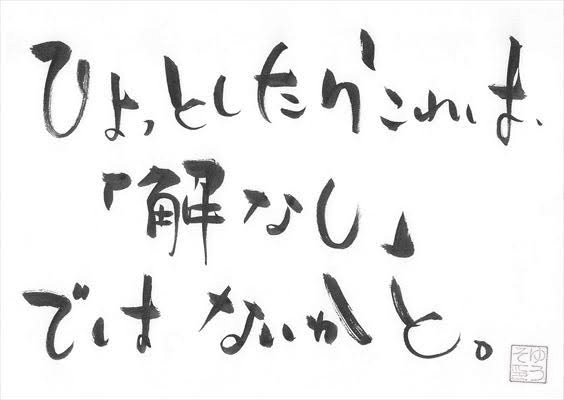 ひょっとしたらこれは、
「解なし」
ではないかと。